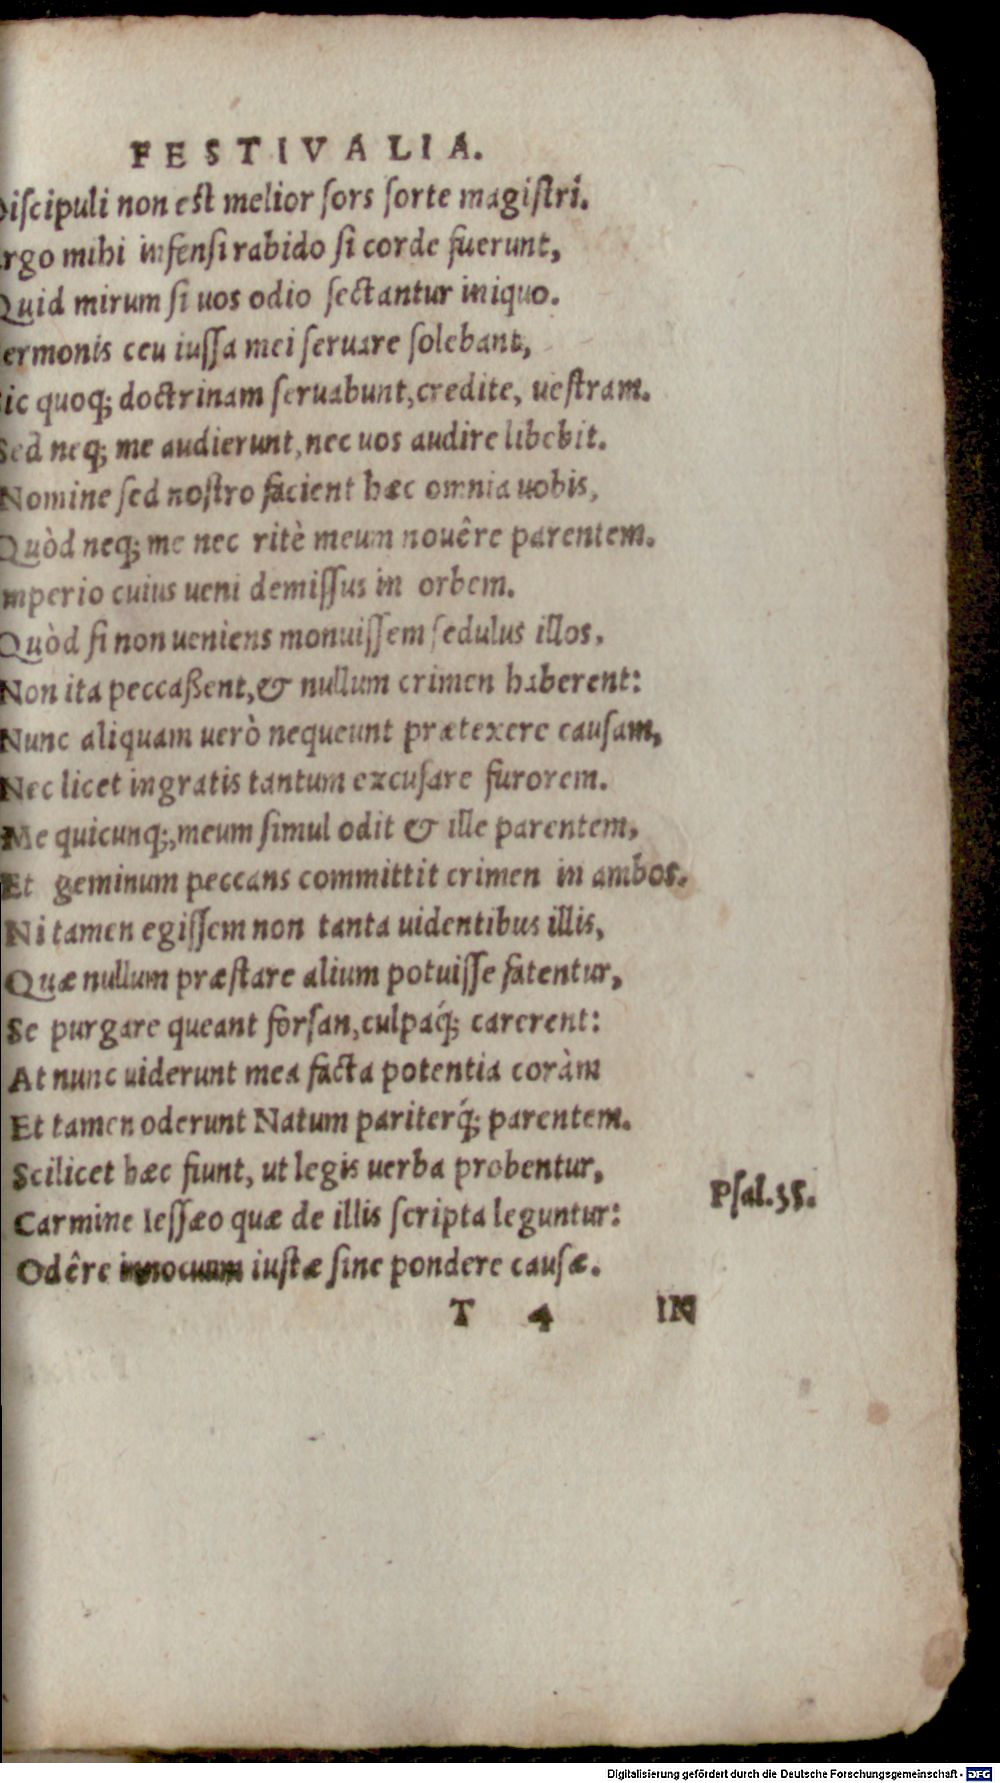 FESTIVALIA.
Discipuli non est melior sors sorte magistri.
Ergo mihi infensi rabido si corde fuerunt,
Quid mirum si uos odio sectantur iniquo.
Sermonis ceu iussa mei seruare solebant,
Sic quoq; doctrinam seruabunt, credite, uestram.
Sed neq; me audierunt, nec uos audire libebit.
Nomine sed nostro facient hæc omnia uobis,
Quòd neq; me nec ritè meum nouêre parentem.
Imperio cuius ueni demissus in orbem.
Quòd si non ueniens monuissem sedulus illos,
Non ita peccaßent, & nullum crimen haberent:
Nunc aliquam uerò nequeunt prætexere causam,
Nec licet ingratis tantum excusare furorem.
Me quicunq;, meum simul odit & ille parentem,
Et geminum peccans committit crimen in ambos.
Ni tamen egissem non tanta uidentibus illis,
Quæ nullum præstare alium potuisse fatentur,
Se purgare queant forsan, culpaq́; carerent:
At nunc uiderunt mea facta potentia coràm
Et tamen oderunt Natum pariterq́; parentem.
Scilicet hæc fiunt, ut legis uerba probentur,
Psal. 35.
Carmine Iessæo quæ de illis scripta leguntur:
Odêre innocuum iustæ sine pondere causæ.
T 4 IN
Digitalisierung gefördert durch die Deutsche Forschungsgemeinschaft - DFG